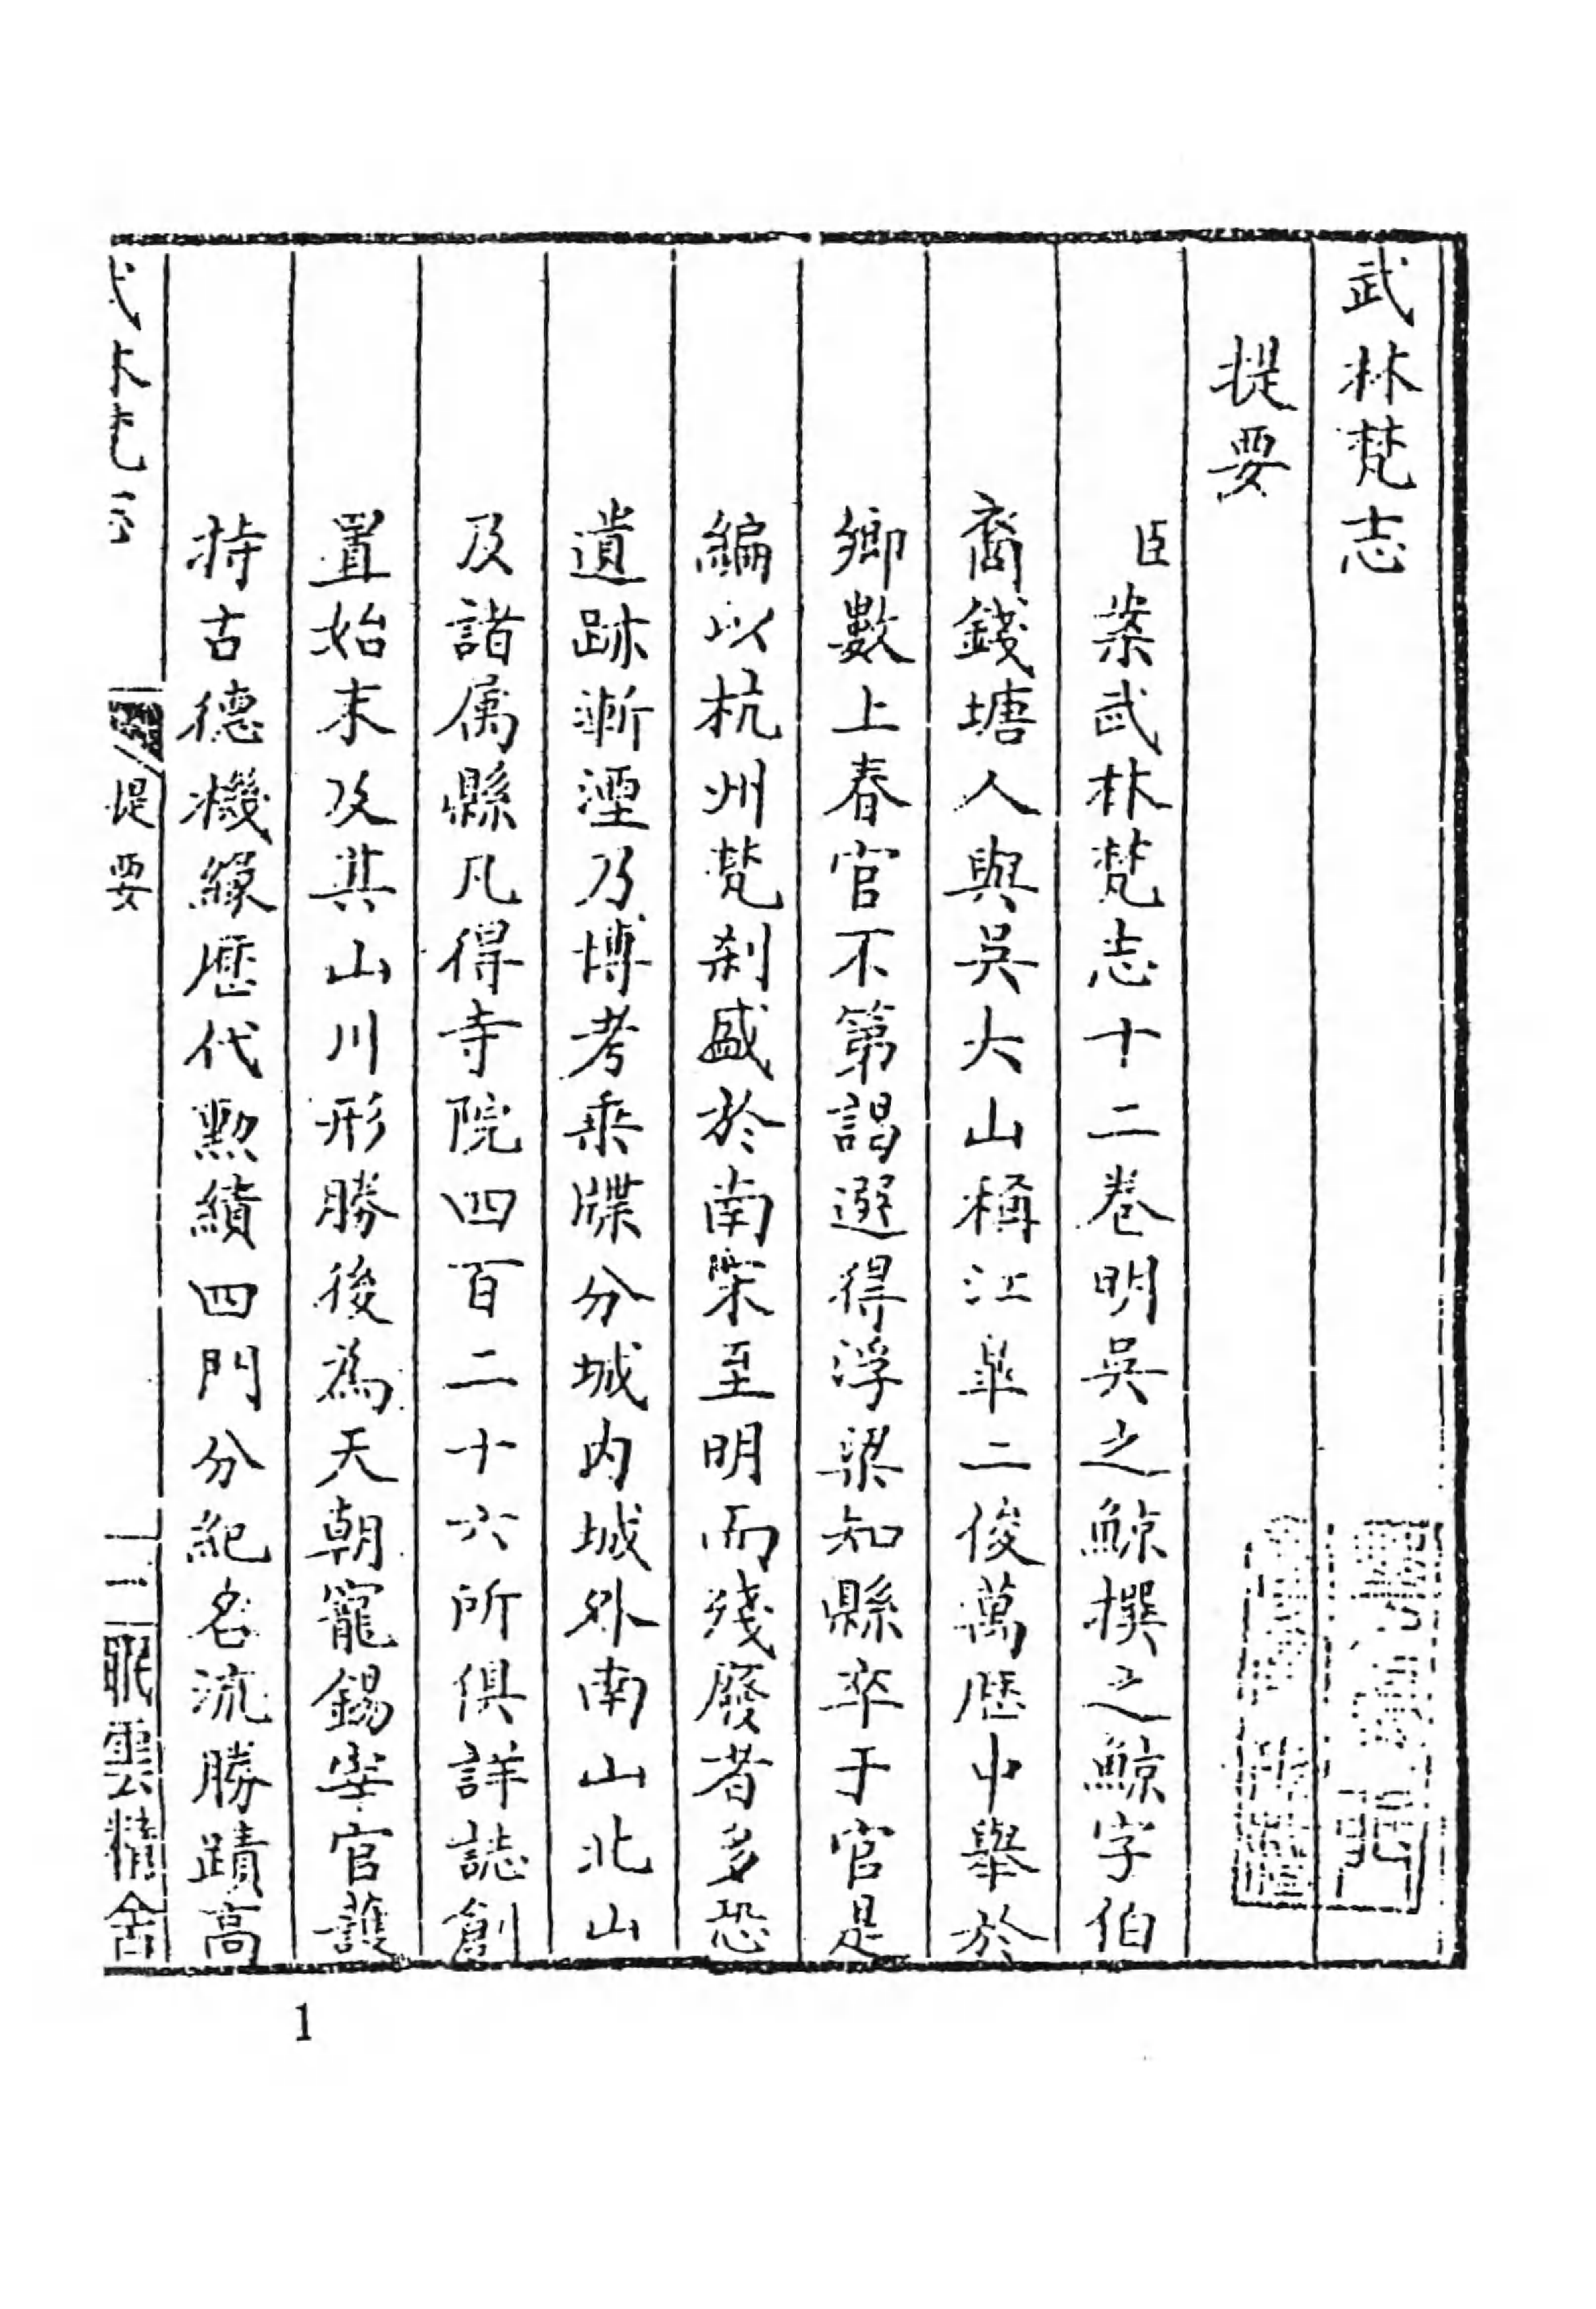 武林梵志
提要
臣案武林梵志十二卷明吳之鯨撰之鯨字伯
裔錢塘人與吳大山稱江臯二俊萬歴中舉於
鄉數上春官不第謁選得浮梁知縣卒于官是
編以杭州梵刹盛於南宋至明而殘廢者多恐
遺跡漸湮乃博考乘牒分城内城外南山北山
及諸属縣凡得寺院四百二十六所俱詳誌創
置始末及其山川形勝後為天朝寵錫宰官護
持古德機緣歴代勲績四門分紀名流勝蹟高
武林梵志
提要
一
二
眠雲精舍
1